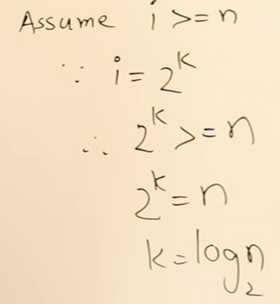 Assume i >= n
∵ i = 2^k
∴ 2^k >= n
2^k = n
k = log n₂